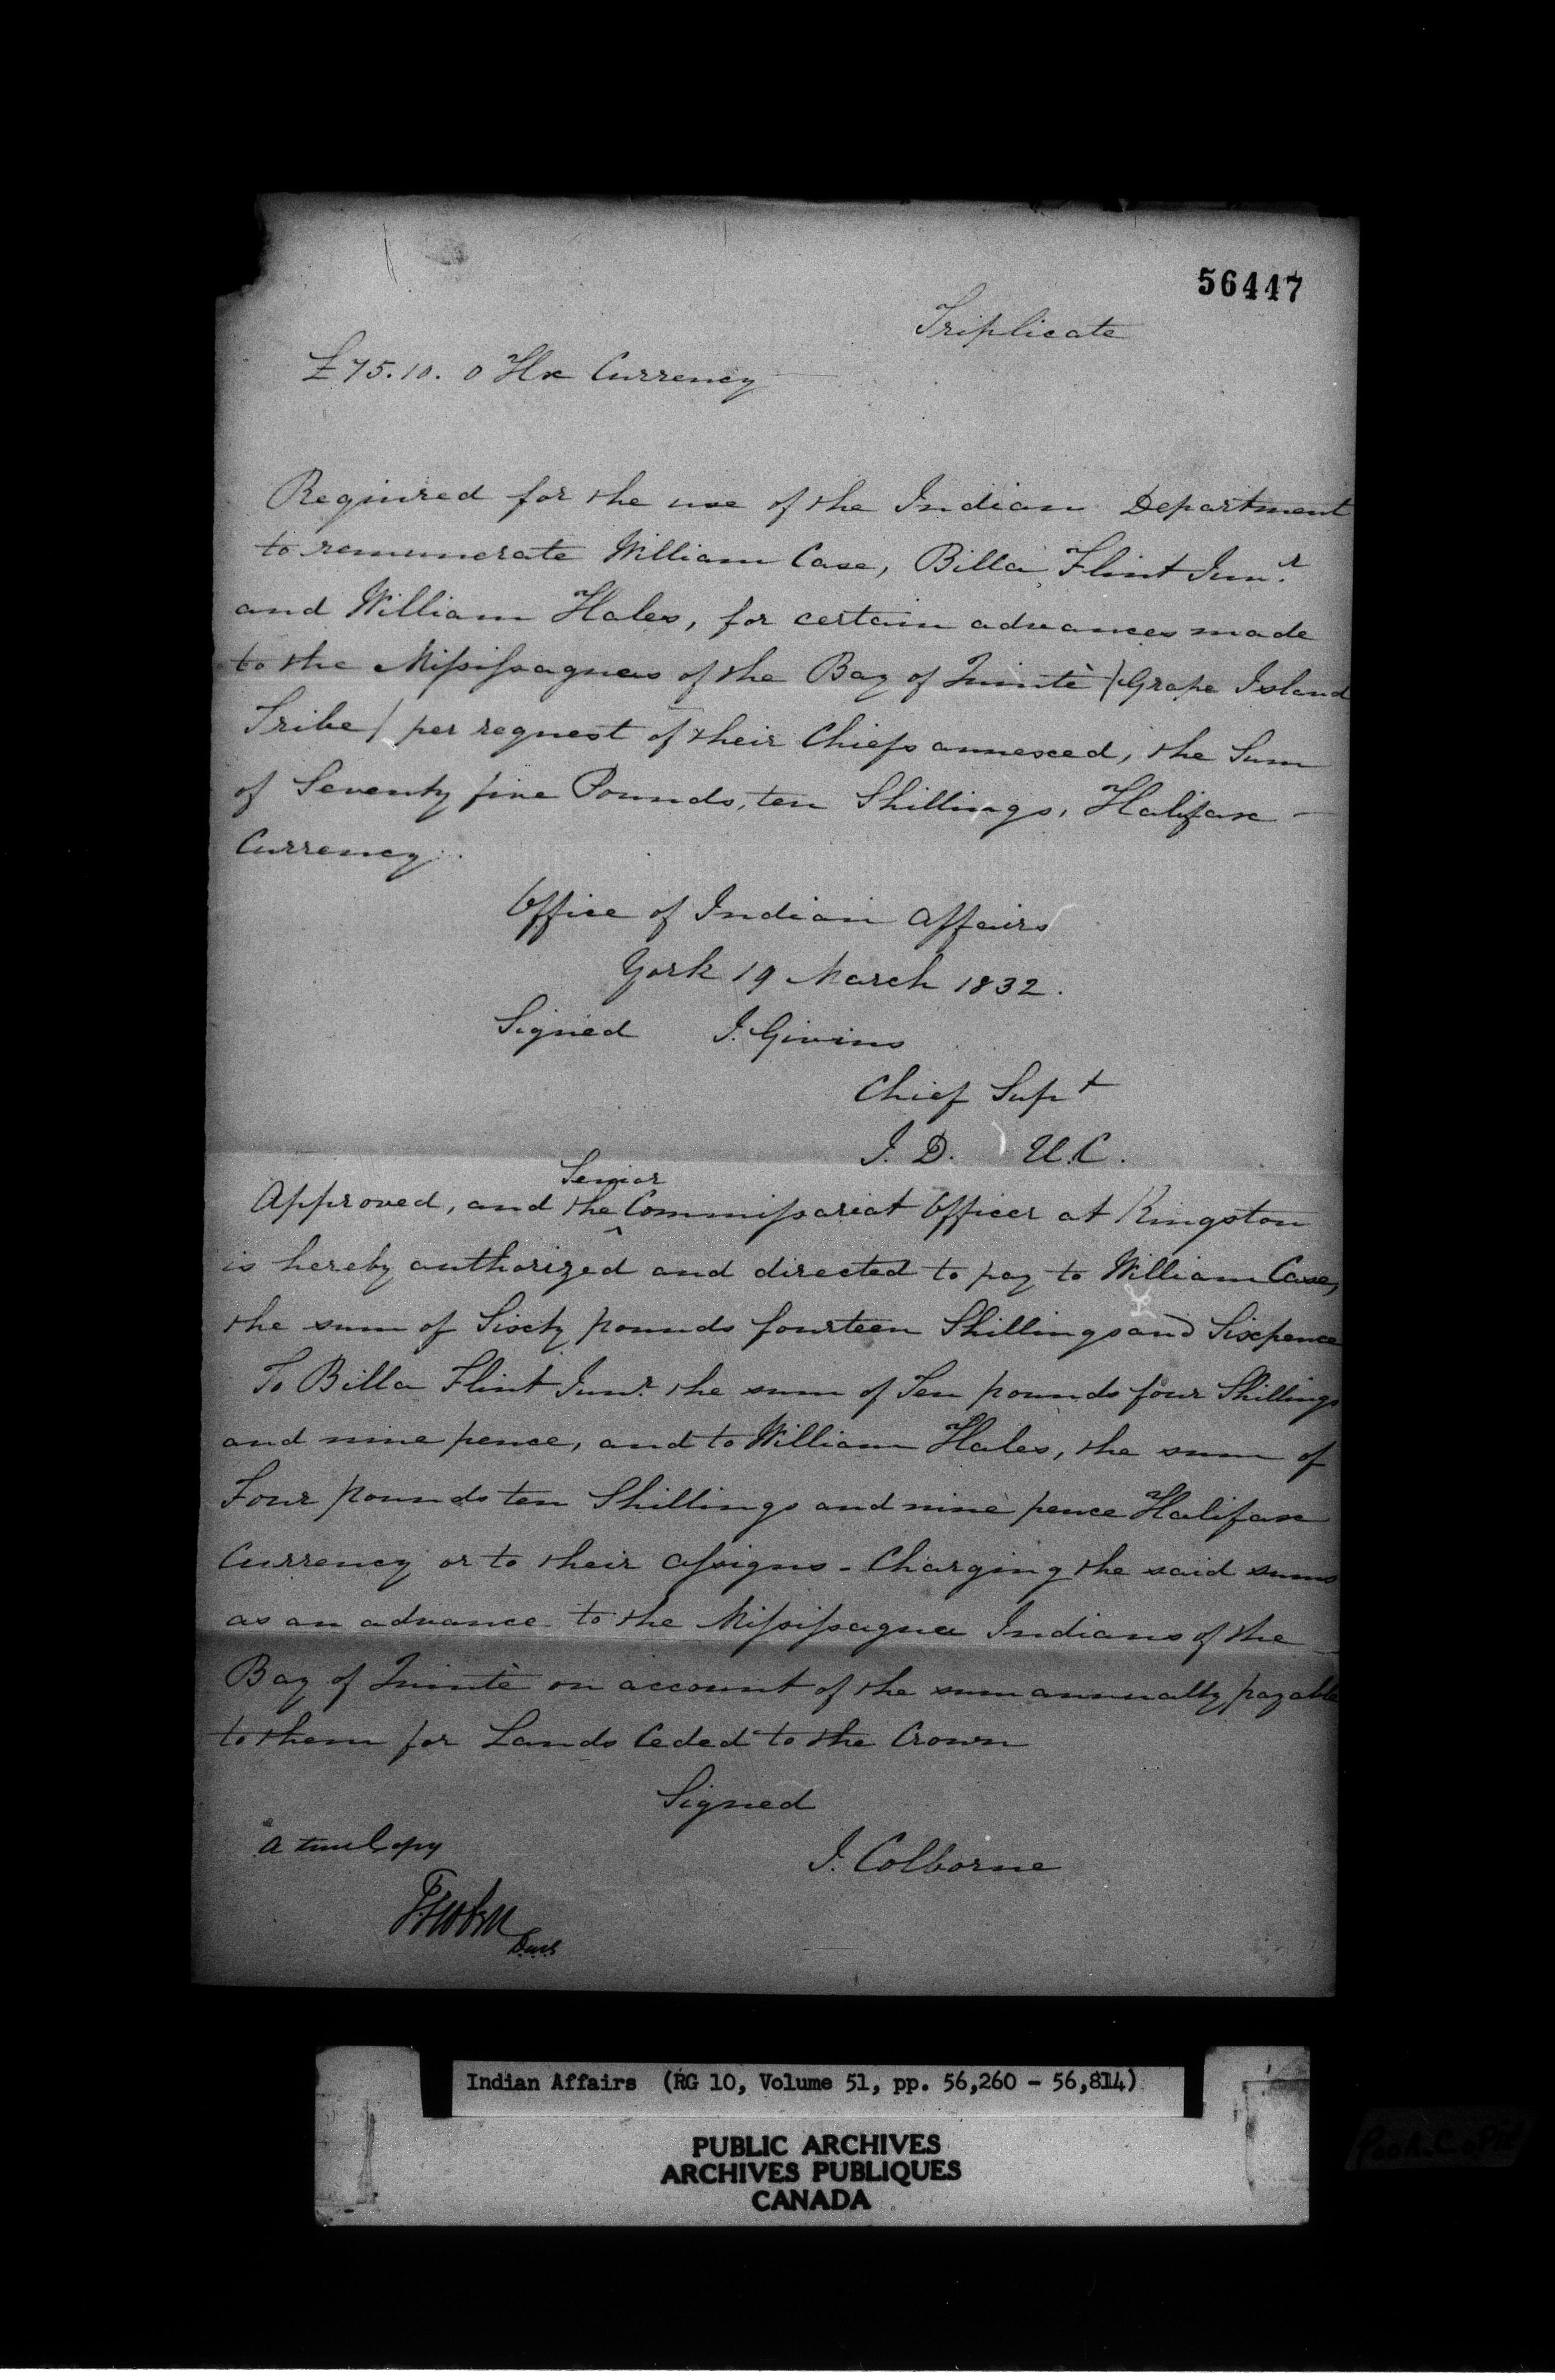 56447
Triplicate
£75.10.0 Hx Currency
Required for the use of the Indian Department
to remunerate William Case, Billa Flint Junr.
and William Hales, for certain advances made
to the Mississaguas of the Bay of Quintè /Grape Island
Tribe/ per request of their Chiefs annexed, the Sum
of Seventy five Pounds, ten Shillings, Halifax
Currency.
Office of Indian Affairs
York 19 March 1832.
Signed J. Givins
Chief Supt
I. D. U.C.
Senior
Approved, and the ^ Commissariat Officer at Kingston
is hereby authorized and directed to pay to William Case,
the sum of Sixty pounds fourteen Shillings and Sixpence
To Billa Flint Junr. the sum of Ten pounds four Shillings
and nine pence, and to William Hales, the sum of
Four pounds ten Shillings and nine pence Halifax
Currency or to their Assigns - Charging the said sums
as an advance to the Mississagua Indians of the
Bay of Quintè on account of the sum annually payable
to them for Lands Ceded to the Crown
Signed
A true Copy
J. Colborne
Indian Affairs (RG 10, Volume 51, pp. 56,260 - 56,814)
PUBLIC ARCHIVES
ARCHIVES PUBLIQUES
CANADA